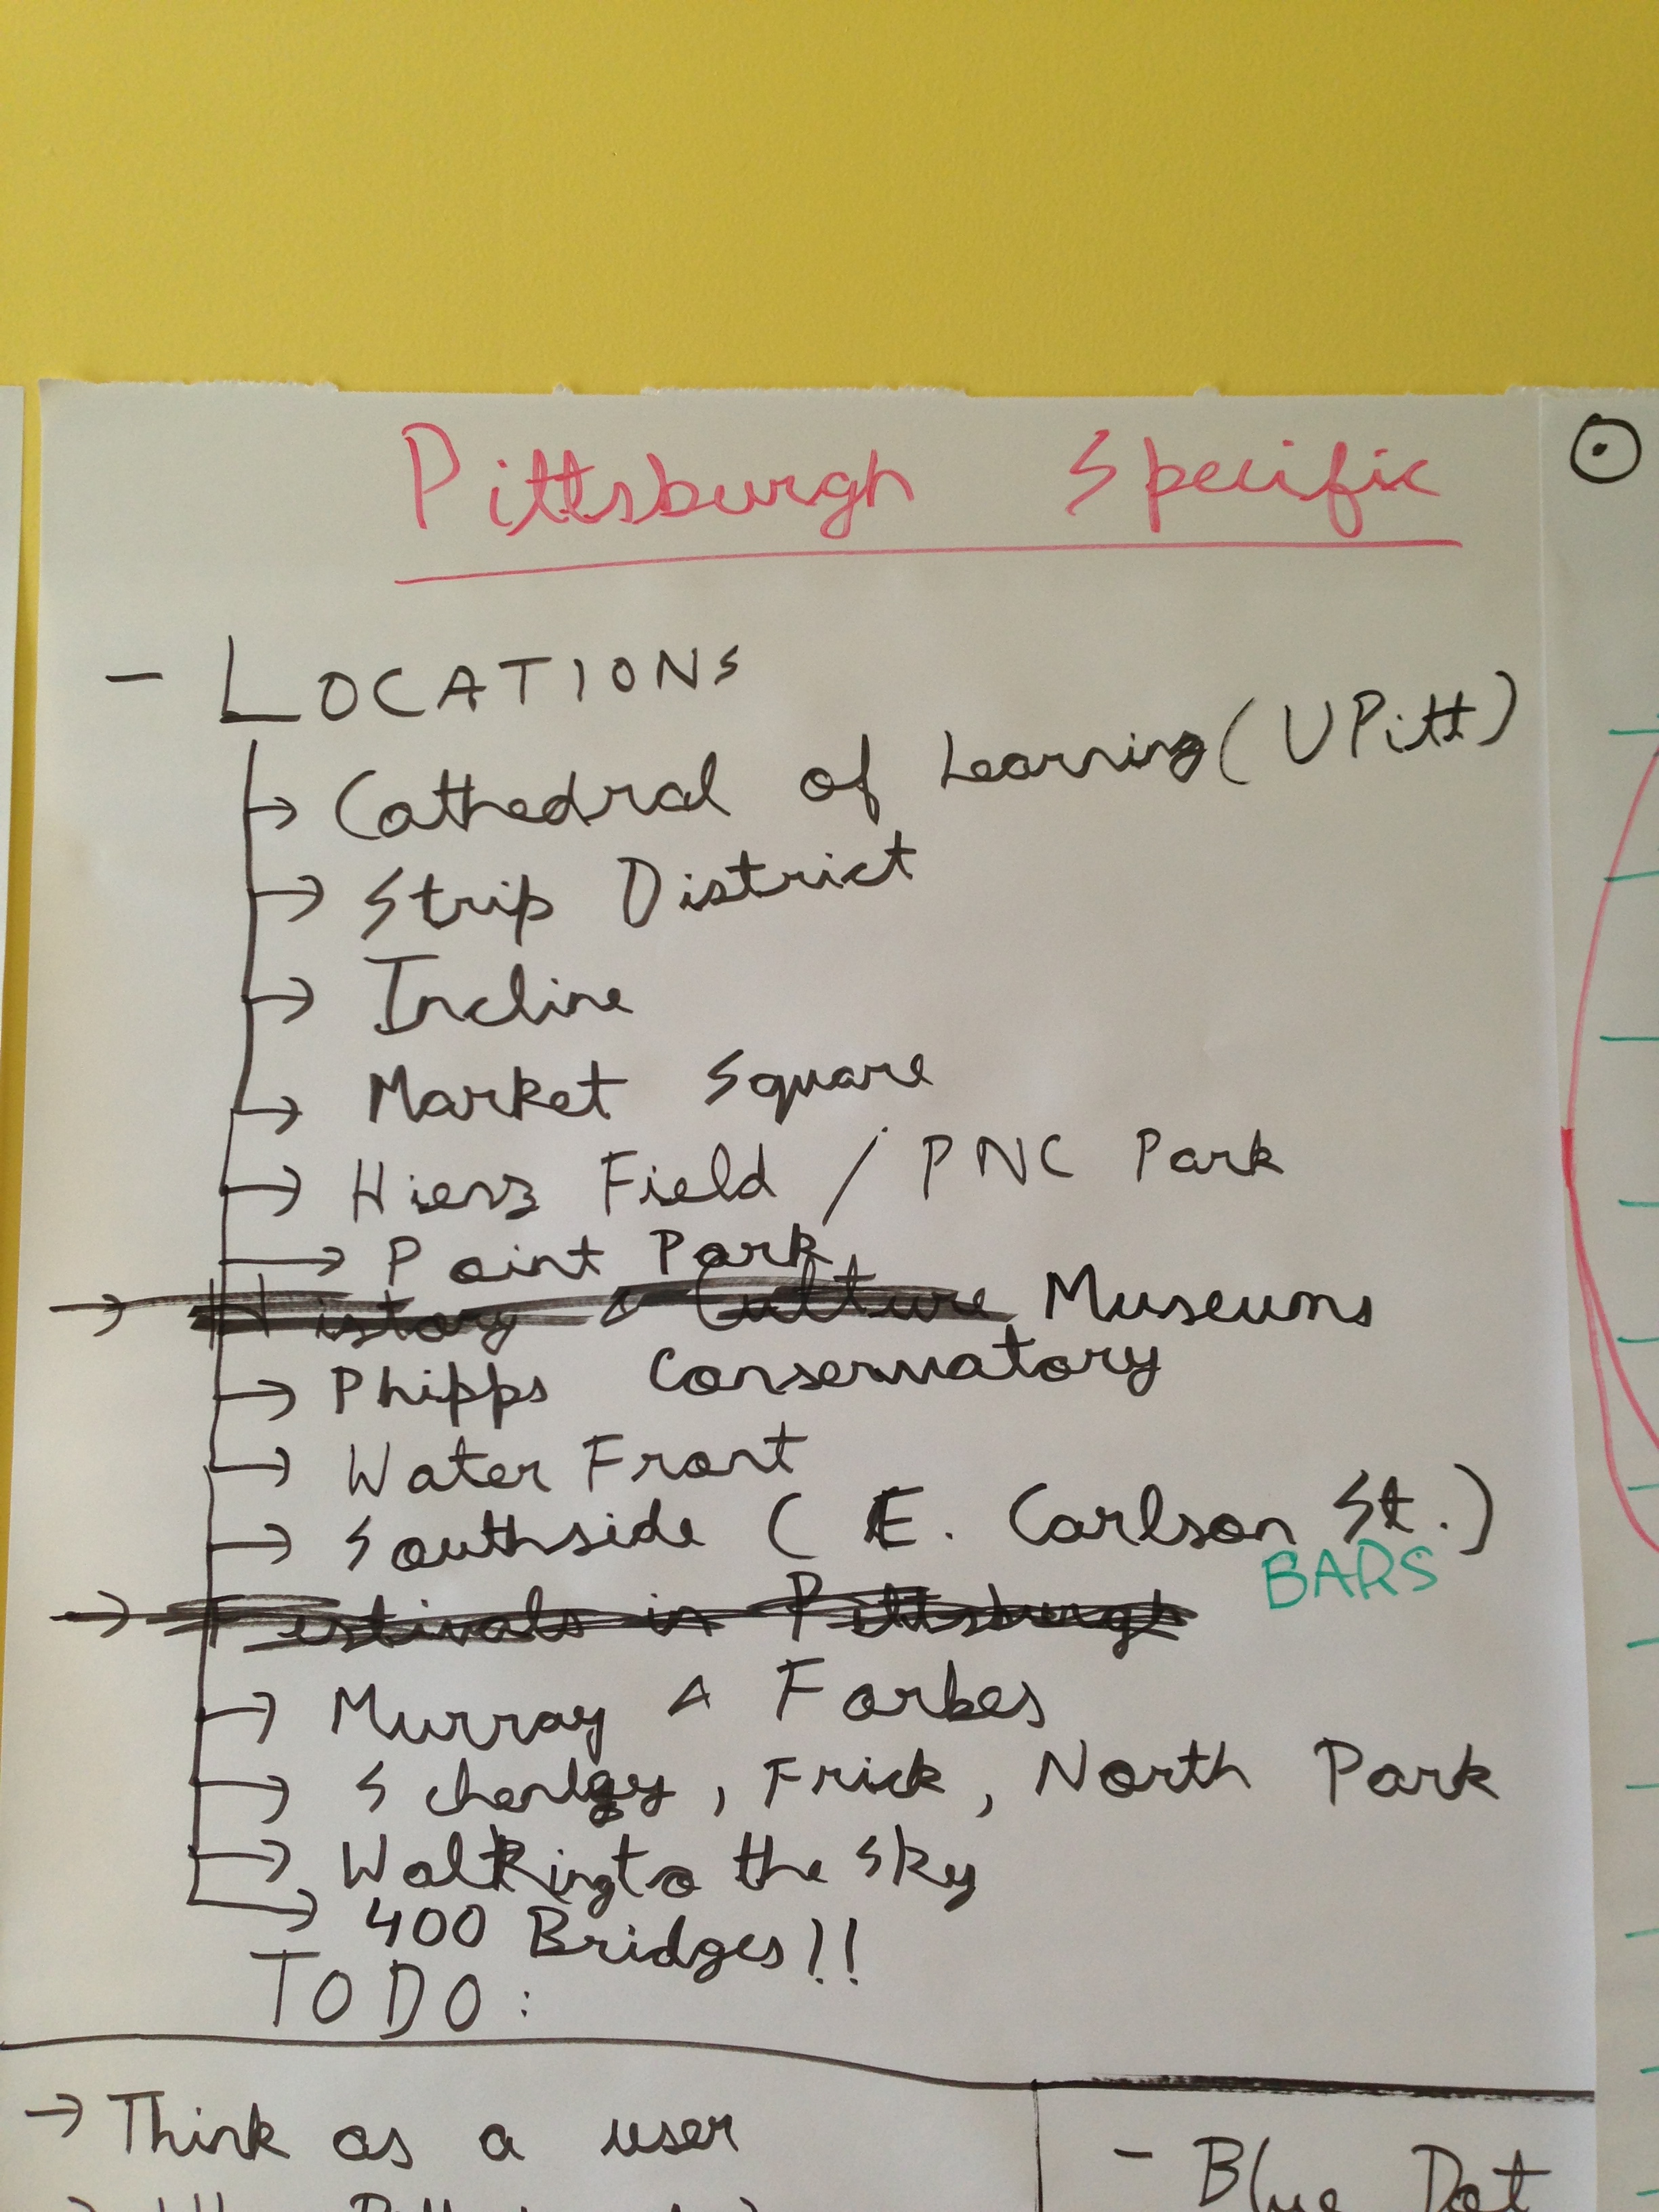 Pittsburgh Specific
- LOCATIONS
→ Cathedral of Learning (UPitt)
→ Strip District
→ Incline
→ Market Square
→ Hienz Field / PNC Park
→ Point Park
→ History & Culture Museums
→ Phipps Conservatory
→ Water Front
→ Southside ( E. Carlson St.)
BARS
→ Festivals in Pittsburgh
→ Murray & Forbes
→ Schenley, Frick, North Park
→ Walking to the Sky
→ 400 Bridges!!
TO DO:
→ Think as a user
- Blue Dot